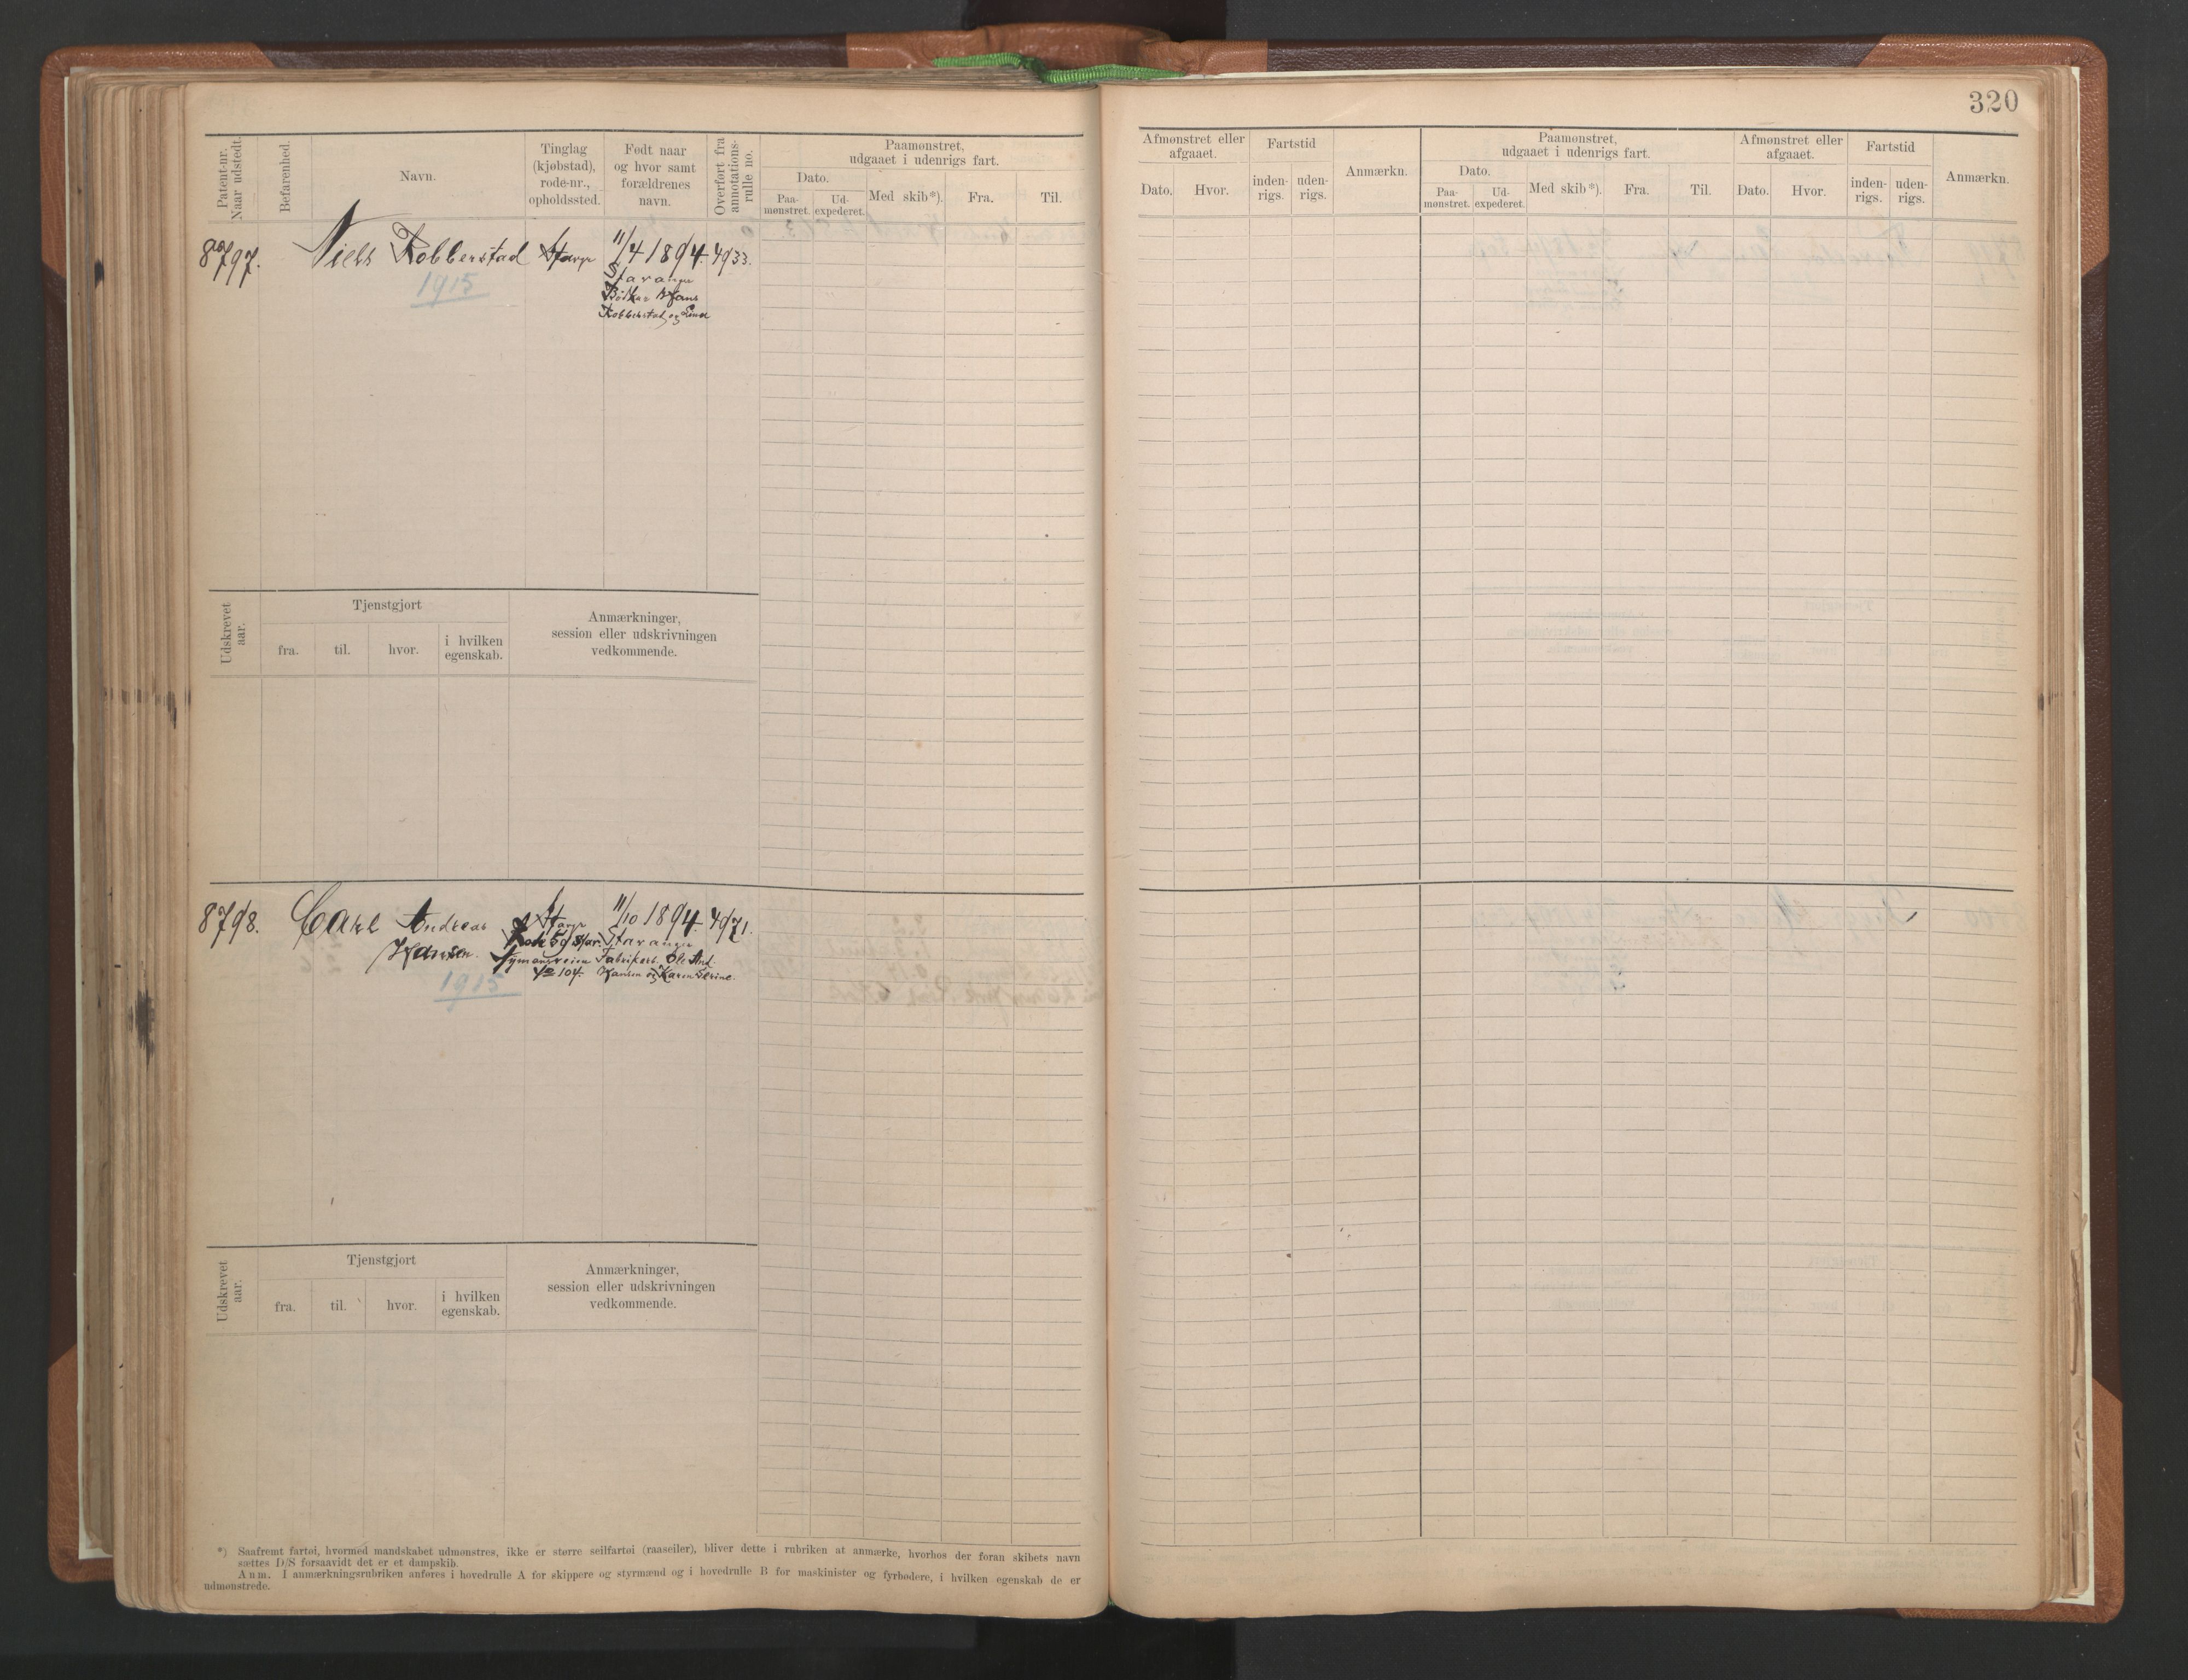 320
Patent-nr.
Naar udstedt.
Befarenhed.
Navn.
Tinglag
(kjøbstad),
rode-nr.,
opholdssted.
Født naar
og hvor samt
forældrenes
navn.
Overført fra
annotations-
rulle no.
Paamønstret,
udgaaet i udenrigs fart.
Dato.
Paa-
mønstret.
Ud-
expederet.
Med skib*).
Fra.
Til.
Afmønstret eller
afgaaet.
Dato.
Hvor.
Fartstid
inden-
rigs.
uden-
rigs.
Anmærkn.
Paamønstret,
udgaaet i udenrigs fart.
Dato.
Paa-
mønstret.
Ud-
expederet.
Med skib*).
Fra.
Til.
Afmønstret eller
afgaaet.
Dato.
Hvor.
Fartstid
inden-
rigs.
uden-
rigs.
Anmærkn.
8797. Niels Robberstad Stavgr 11/4 1894. 4933.
Stavanger
Bødker Hans
Robberstad og
1915
Udskrevet
aar.
Tjenstgjort
fra.
til.
hvor.
i hvilken
egenskab.
Anmærkninger,
session eller udskrivningen
vedkommende.
8798. Carl Andreas Stavgr 11/10 1894. 4971.
Hansen. Rode 59 Stav. Stavanger
Nymansveien Fabrikarb. Ole And.
No 104. Hansen og Karen Serine
1915
Udskrevet
aar.
Tjenstgjort
fra.
til.
hvor.
i hvilken
egenskab.
Anmærkninger,
session eller udskrivningen
vedkommende.
*) Saafremt fartøi, hvormed mandskabet udmønstres, ikke er større seilfartøi (raaseiler), bliver dette i rubriken at anmærke, hvorhos der foran skibets navn
sættes D/S forsaavidt det er et dampskib.
Anm. I anmærkningsrubriken anføres i hovedrulle A for skippere og styrmænd og i hovedrulle B for maskinister og fyrbødere, i hvilken egenskab de er
udmønstrede.